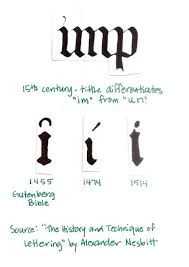 imp
15th century - tittle differentiates
"im" from "un".
i i i
1455 1474 1514
Gutenberg
Bible
Source: "The History and Technique of
Lettering" by Alexander Nesbitt